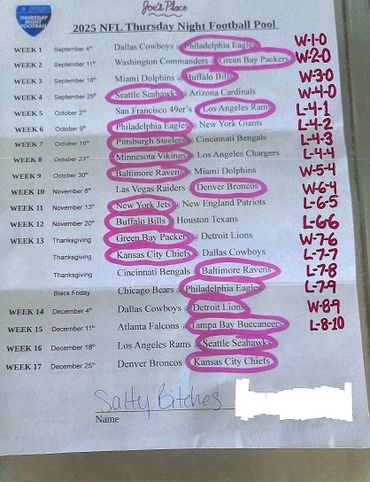 THURSDAY NIGHT FOOTBALL
Joe's Place
2025 NFL Thursday Night Football Pool
WEEK 1 September 4th Dallas Cowboys @ Philadelphia Eagles W-1-0
WEEK 2 September 11th Washington Commanders @ Green Bay Packers W-2-0
WEEK 3 September 18th Miami Dolphins @ Buffalo Bills W-3-0
WEEK 4 September 25th Seattle Seahawks @ Arizona Cardinals W-4-0
WEEK 5 October 2nd San Francisco 49er's @ Los Angeles Rams L-4-1
WEEK 6 October 9th Philadelphia Eagles @ New York Giants L-4-2
WEEK 7 October 16th Pittsburgh Steelers @ Cincinnati Bengals L-4-3
WEEK 8 October 23rd Minnesota Vikings @ Los Angeles Chargers L-4-4
WEEK 9 October 30th Baltimore Ravens @ Miami Dolphins W-5-4
WEEK 10 November 6th Las Vegas Raiders @ Denver Broncos W-6-4
WEEK 11 November 13th New York Jets @ New England Patriots L-6-5
WEEK 12 November 20th Buffalo Bills @ Houston Texans L-6-6
WEEK 13 Thanksgiving Green Bay Packers @ Detroit Lions W-7-6
Thanksgiving Kansas City Chiefs @ Dallas Cowboys L-7-7
Thanksgiving Cincinnati Bengals @ Baltimore Ravens L-7-8
Black Friday Chicago Bears @ Philadelphia Eagles L-7-9
WEEK 14 December 4th Dallas Cowboys @ Detroit Lions W-8-9
WEEK 15 December 11th Atlanta Falcons @ Tampa Bay Buccaneers L-8-10
WEEK 16 December 18th Los Angeles Rams @ Seattle Seahawks
WEEK 17 December 25th Denver Broncos @ Kansas City Chiefs
Salty Bitches
Name